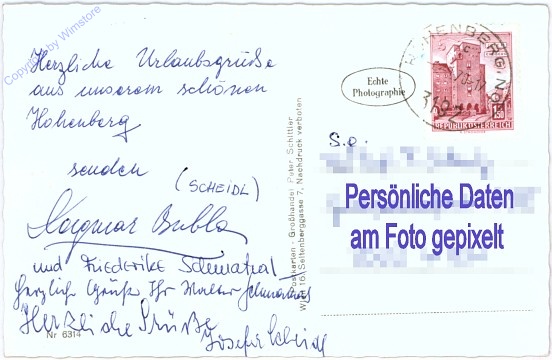 Copyright by Wimstore
Herzliche Urlaubsgrüße
aus unserem schönen
Hohenberg
senden
(SCHEIDL)
Dagmar Bubla
und Friederike
Herzliche Grüße Ihr Walter
Herzliche Grüße
Josefa Scheidl
Nr 6314
Postkarten - Großhandel Peter Schittler
Wien 16, Seitenberggasse 7, Nachdruck verboten
Echte
Photographie
HOHENBERG, N.Ö.
3192
REPUBLIK ÖSTERREICH
S.g.
Persönliche Daten
am Foto gepixelt